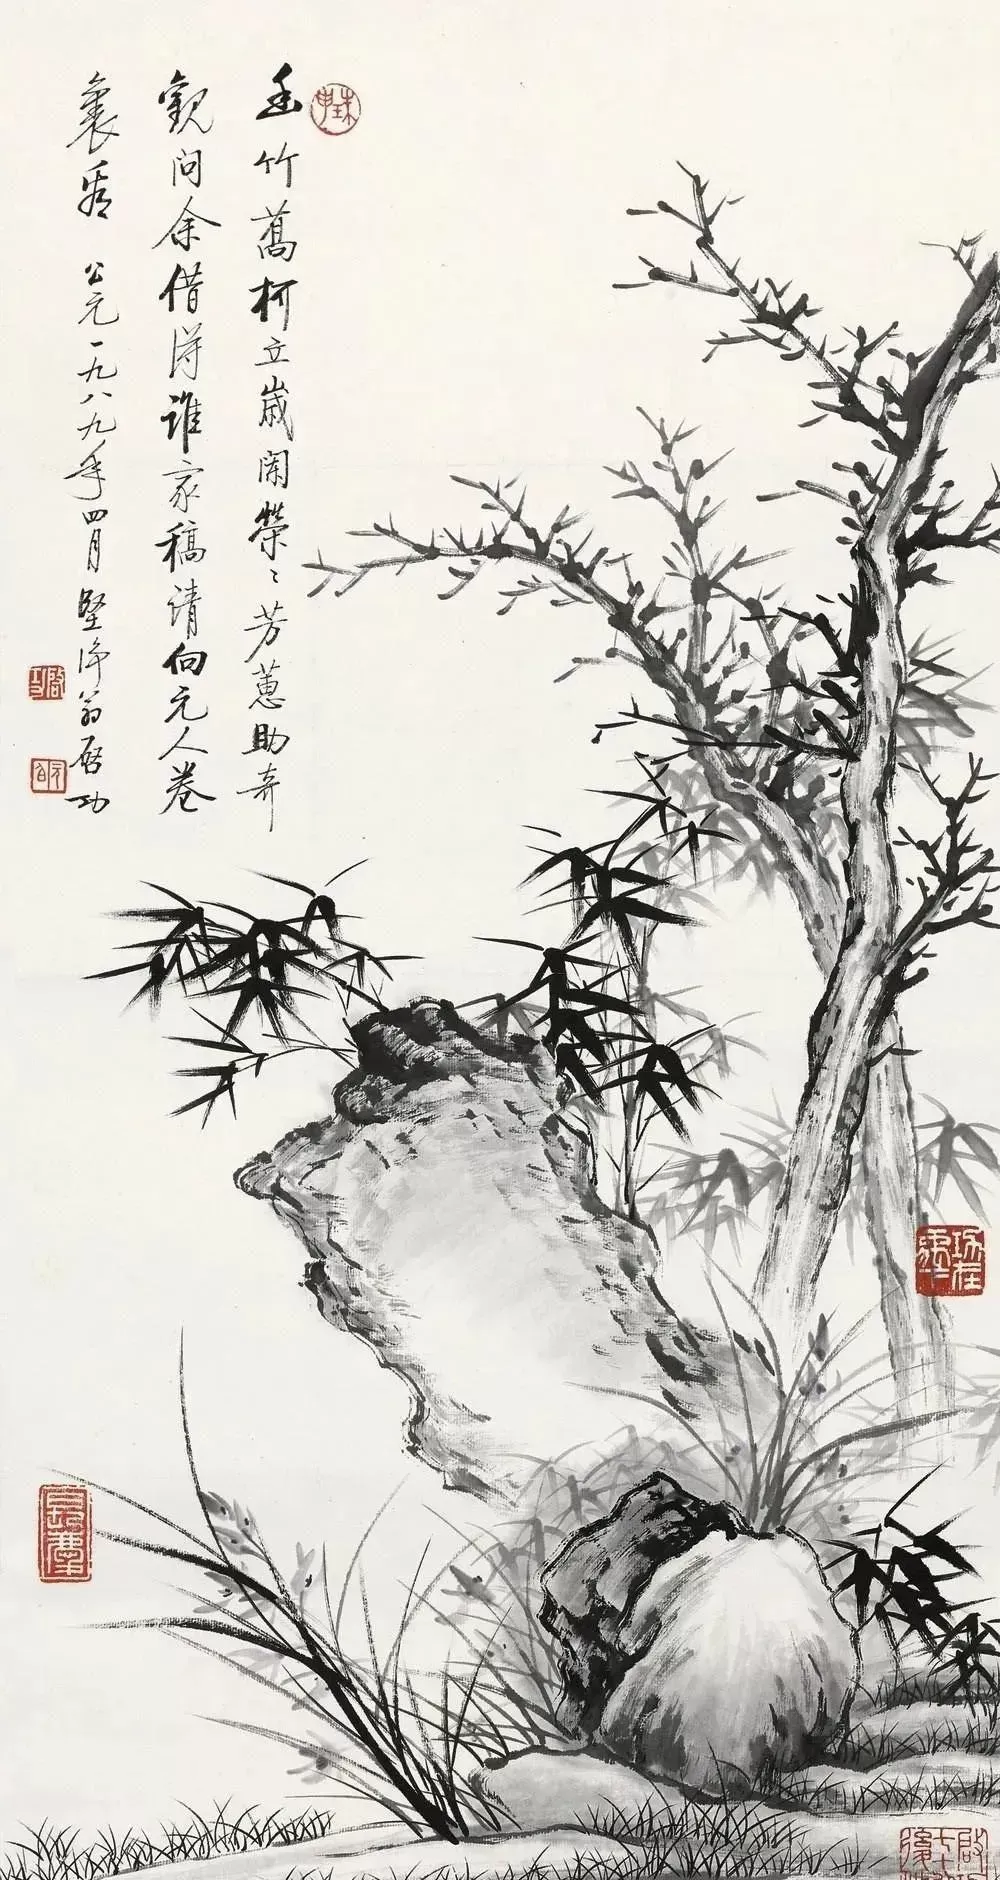 竹喬柯立歲闌榮〻芳蕙助奇
觀問余借得誰家稿請向元人卷
裏看 公元一九八九年四月堅淨翁啓功
啓功
元白